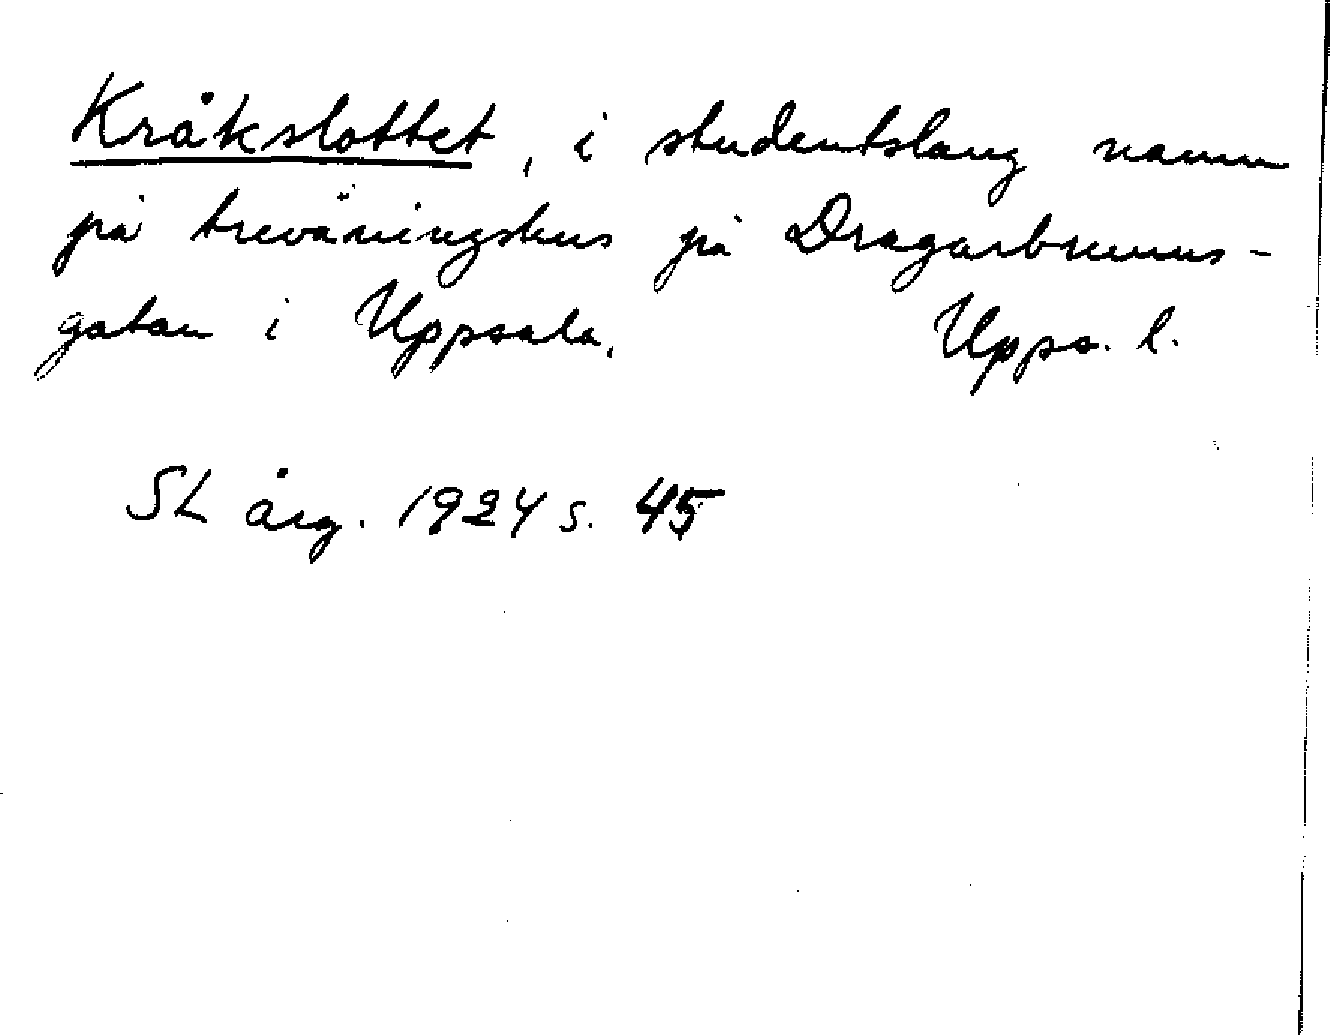 Kråkslottet, i studentslang namn
på trevåningshus på Dragarbrunns-
gatan i Uppsala. Upps. l.
SL årg. 1924 s. 45